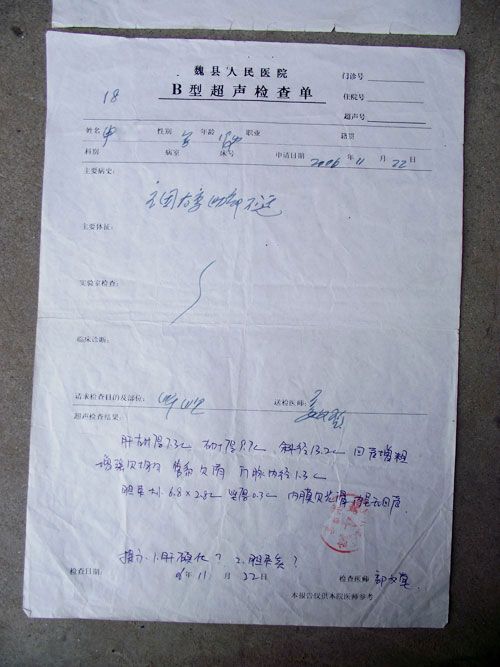 魏县人民医院
B型超声检查单
门诊号
住院号
超声号
18
姓名 申 性别 年龄 职业 籍贯
科别 病室 床号 申请日期 2006 年 11 月 22 日
主要病史:
主要体征:
实验室检查:
临床诊断:
请求检查目的及部位: 送检医师:
超声检查结果:
肝 厚7.3c 厚8.7c 斜径13.2c 回声增粗
增强欠均匀 管系欠清 门脉内径1.3c
胆囊大小 6.8×2.8c 壁厚0.3c 内膜欠光滑 回声
提示:1.肝硬化? 2.胆囊炎?
检查日期: 年 11 月 22日 检查医师
本报告仅供本院医师参考